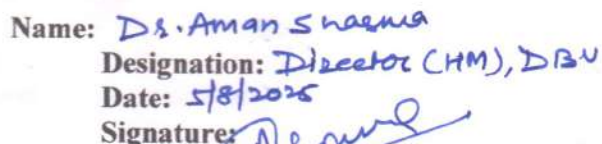 Name: Dr. Aman Sharma
Designation: Director (HM), DBU
Date: 5/8/2025
Signature: